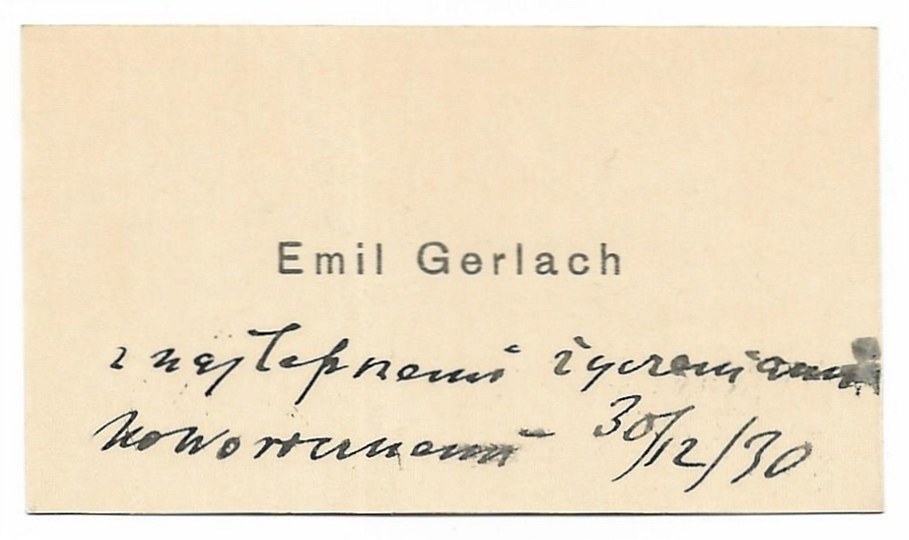 Emil Gerlach
z najlepszemi życzeniami
noworocznemi 30/12/30